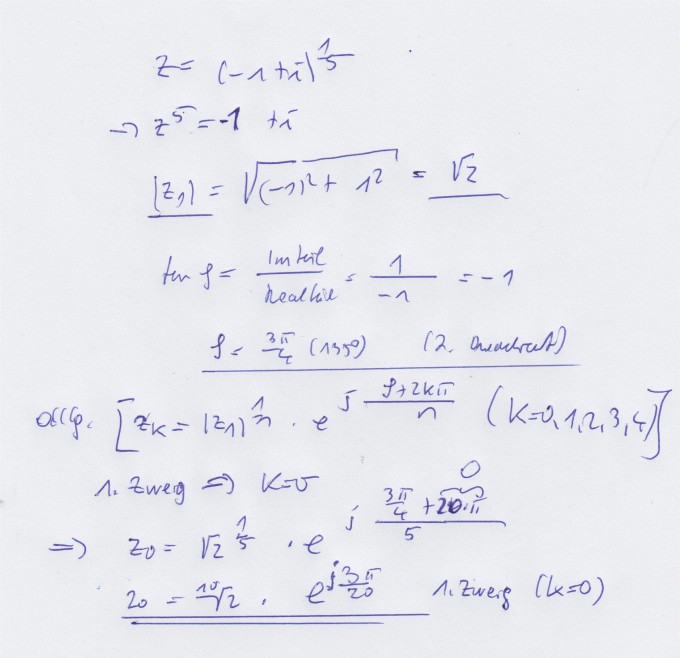 z = (-1+i)^{1/5}
→ z^5 = -1 + i
|z_1| = √((-1)² + 1²) = √2
tan φ = Imteil / Realteil = 1 / -1 = -1
φ = 3π/4 (135°) (2. Quadrant)
allg. [z_K = |z_1|^{1/n} · e^{j (φ+2kπ)/n} (K=0,1,2,3,4)]
1. Zweig ⇒ K=0
⇒ z_0 = √2^{1/5} · e^{j (3π/4 + 2·0·π)/5} 0
z_0 = ¹⁰√2 · e^{j 3π/20} 1. Zweig (k=0)